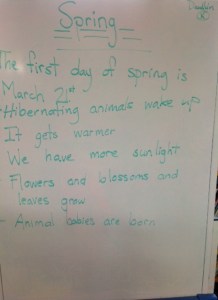 Spring
The first day of spring is
March 21st
Hibernating animals wake up
It gets warmer
We have more sunlight
- Flowers and blossoms and
leaves grow
- Animal babies are born